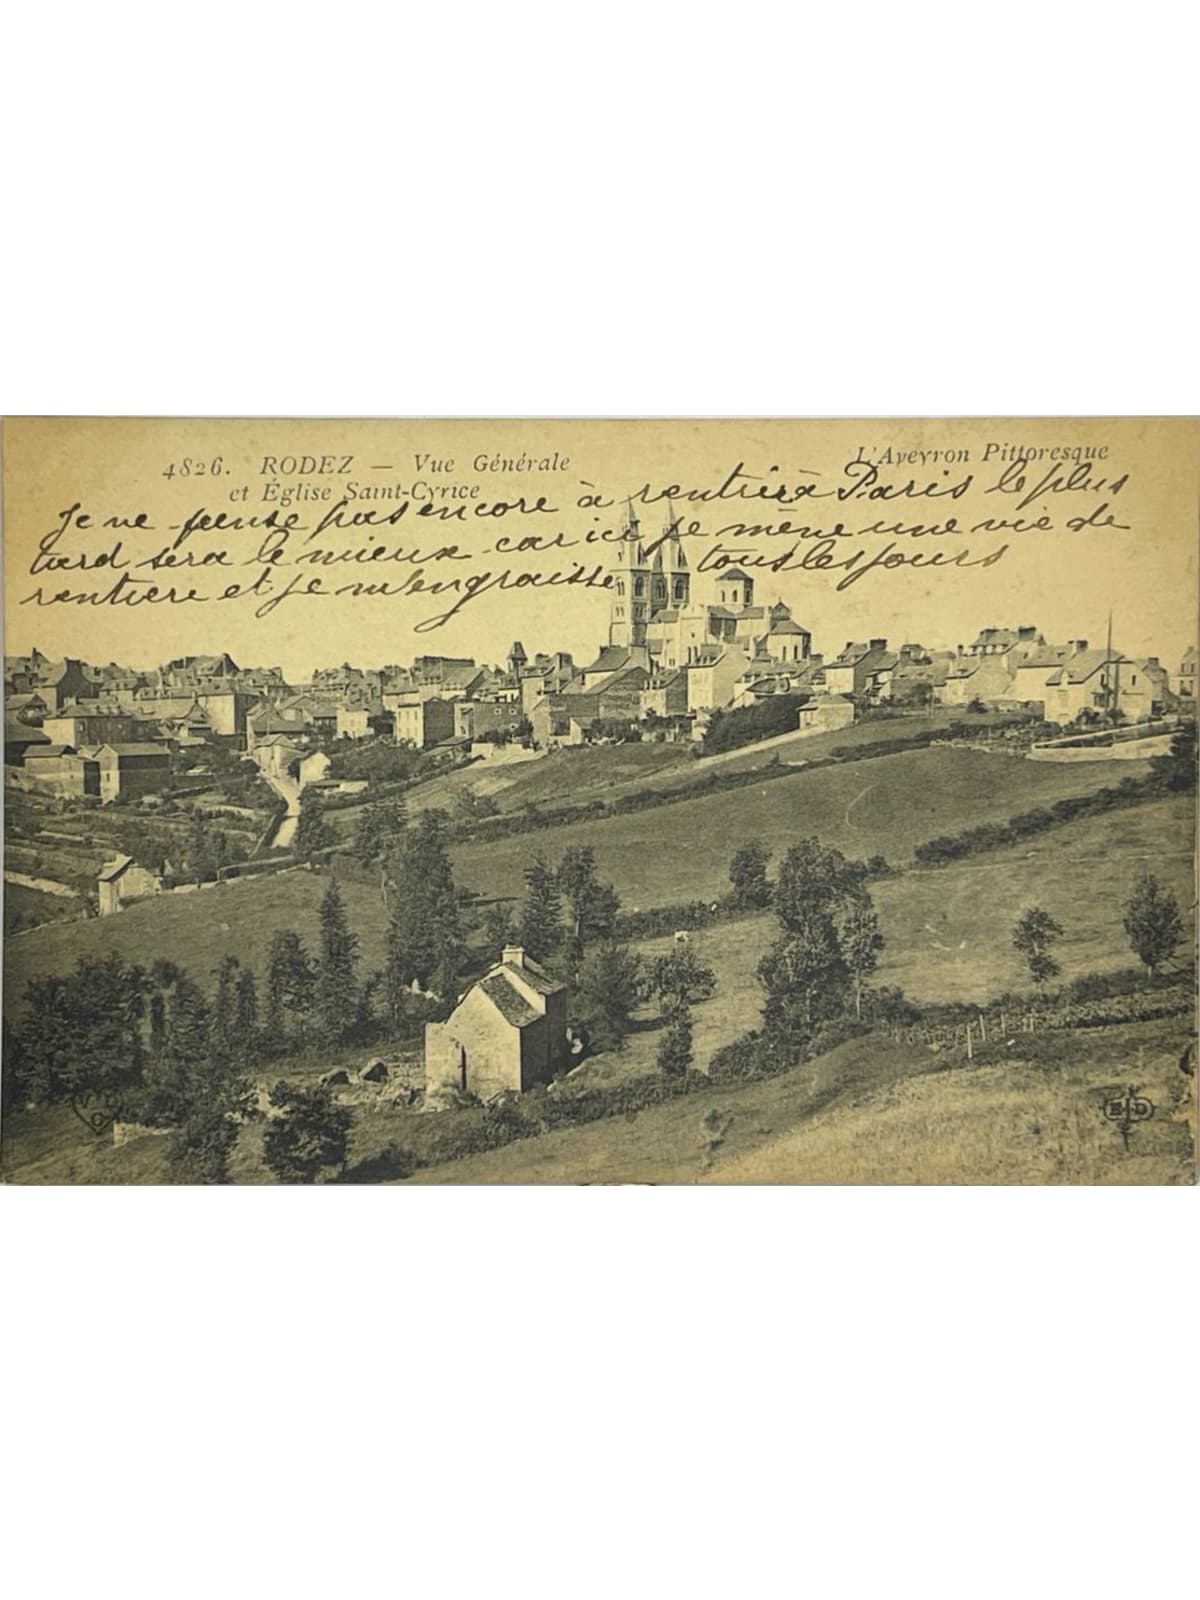 4826. RODEZ — Vue Générale
et Église Saint-Cyrice
L'Aveyron Pittoresque
Je ne pense pas encore à rentrer à Paris le plus
tard sera le mieux car ici je mène une vie de
rentière et je m'engraisse tous les jours
ELD